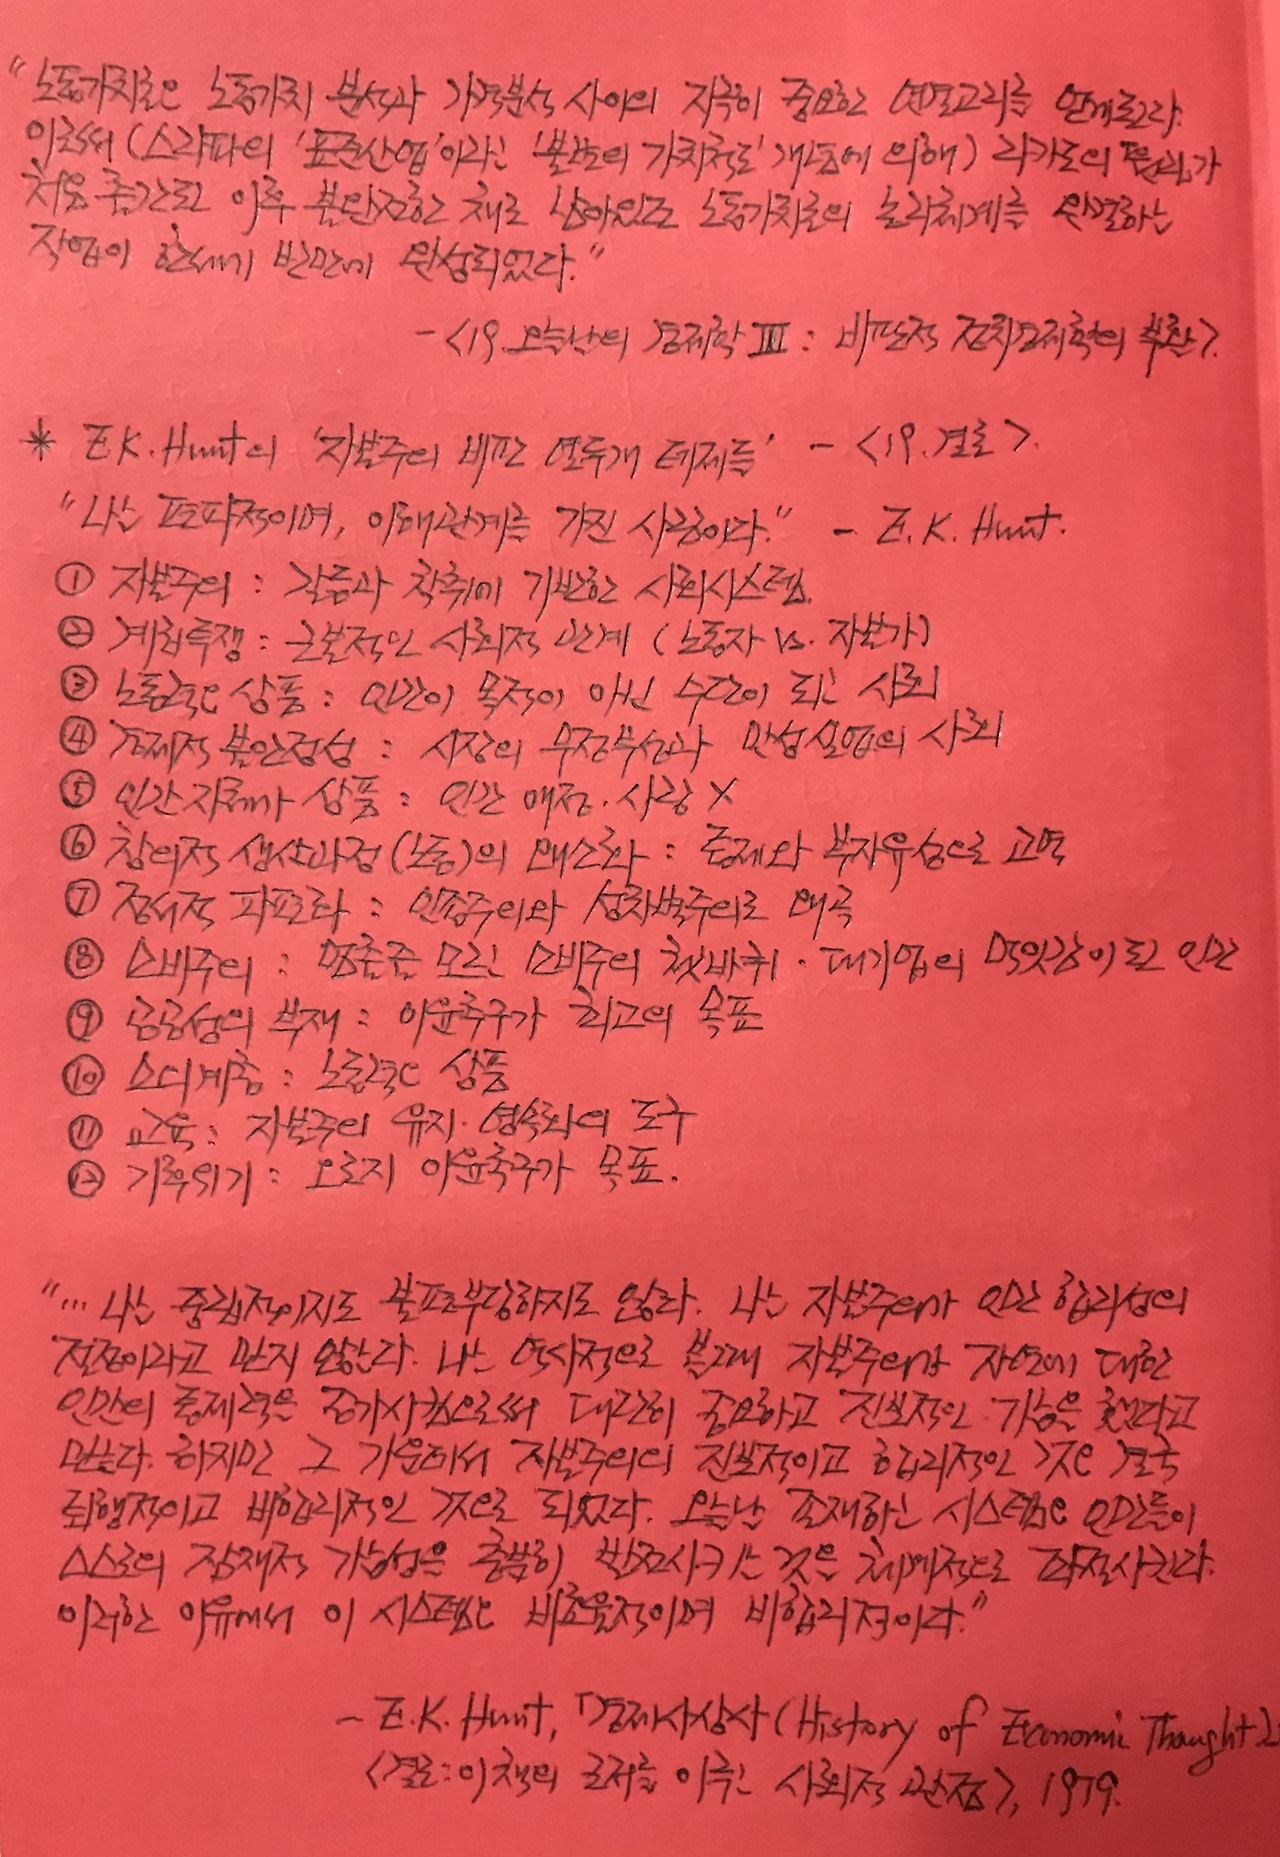 "노동가치론은 노동가치 분석과 가격분석 사이의 지극히 중요한 연결고리를 완게된다.
이로써 (스라파의 '표준산업'이라는 '불변의 가치척도' 개념에 의해) 리카도의 원리가
처음 출간된 이후 불완전한 채로 남아있던 노동가치론의 논리체계를 완결하는
작업이 한세기 반만에 완성되었다."
- <19. 오늘날의 경제학 III : 비판적 정치경제학의 부활>.
* E.K.Hunt의 '자본주의 비판 열두개 테제들' - <19.결론>.
"나는 편파적이며, 이해관계를 가진 사람이다." - E.K.Hunt.
① 자본주의 : 갈등과 착취에 기반한 사회시스템.
② 계급투쟁 : 근본적인 사회적 관계 (노동자 vs. 자본가)
③ 노동력은 상품 : 인간이 목적이 아닌 수단이 되는 사회
④ 경제적 불안정성 : 시장의 무정부성과 만성실업의 사회
⑤ 인간자체가 상품 : 인간 애정·사랑 X
⑥ 창의적 생산과정(노동)의 왜소화 : 통제와 부자유성으로 고역
⑦ 정서적 파편화 : 인종주의와 성차별주의로 왜곡
⑧ 소비주의 : 멈출줄 모르는 소비주의 쳇바퀴·대기업의 먹잇감이 된 인간
⑨ 공공성의 부재 : 이윤추구가 최고의 목표
⑩ 소외계층 : 노동력은 상품
⑪ 교육 : 자본주의 유지·영속화의 도구
⑫ 기후위기 : 오로지 이윤추구가 목표.
"… 나는 중립적이지도 불편부당하지도 않다. 나는 자본주의가 인간 합리성의
정점이라고 믿지 않는다. 나는 역사적으로 볼때 자본주의가 자연에 대한
인간의 통제력을 증가시킴으로써 대단히 중요하고 진보적인 기능을 했다고
믿는다. 하지만 그 가운데서 자본주의의 진보적이고 합리적인 것은 결국
퇴행적이고 비합리적인 것으로 되었다. 오늘날 존재하는 시스템은 인간들이
스스로의 잠재적 가능성을 충분히 발전시키는 것을 체계적으로 좌절시킨다.
이러한 이유에서 이 시스템은 비효율적이며 비합리적이다."
- E.K.Hunt, 「경제사상사 (History of Economic Thought)」
<결론 : 이책의 근저를 이루는 사회적 관점>, 1979.